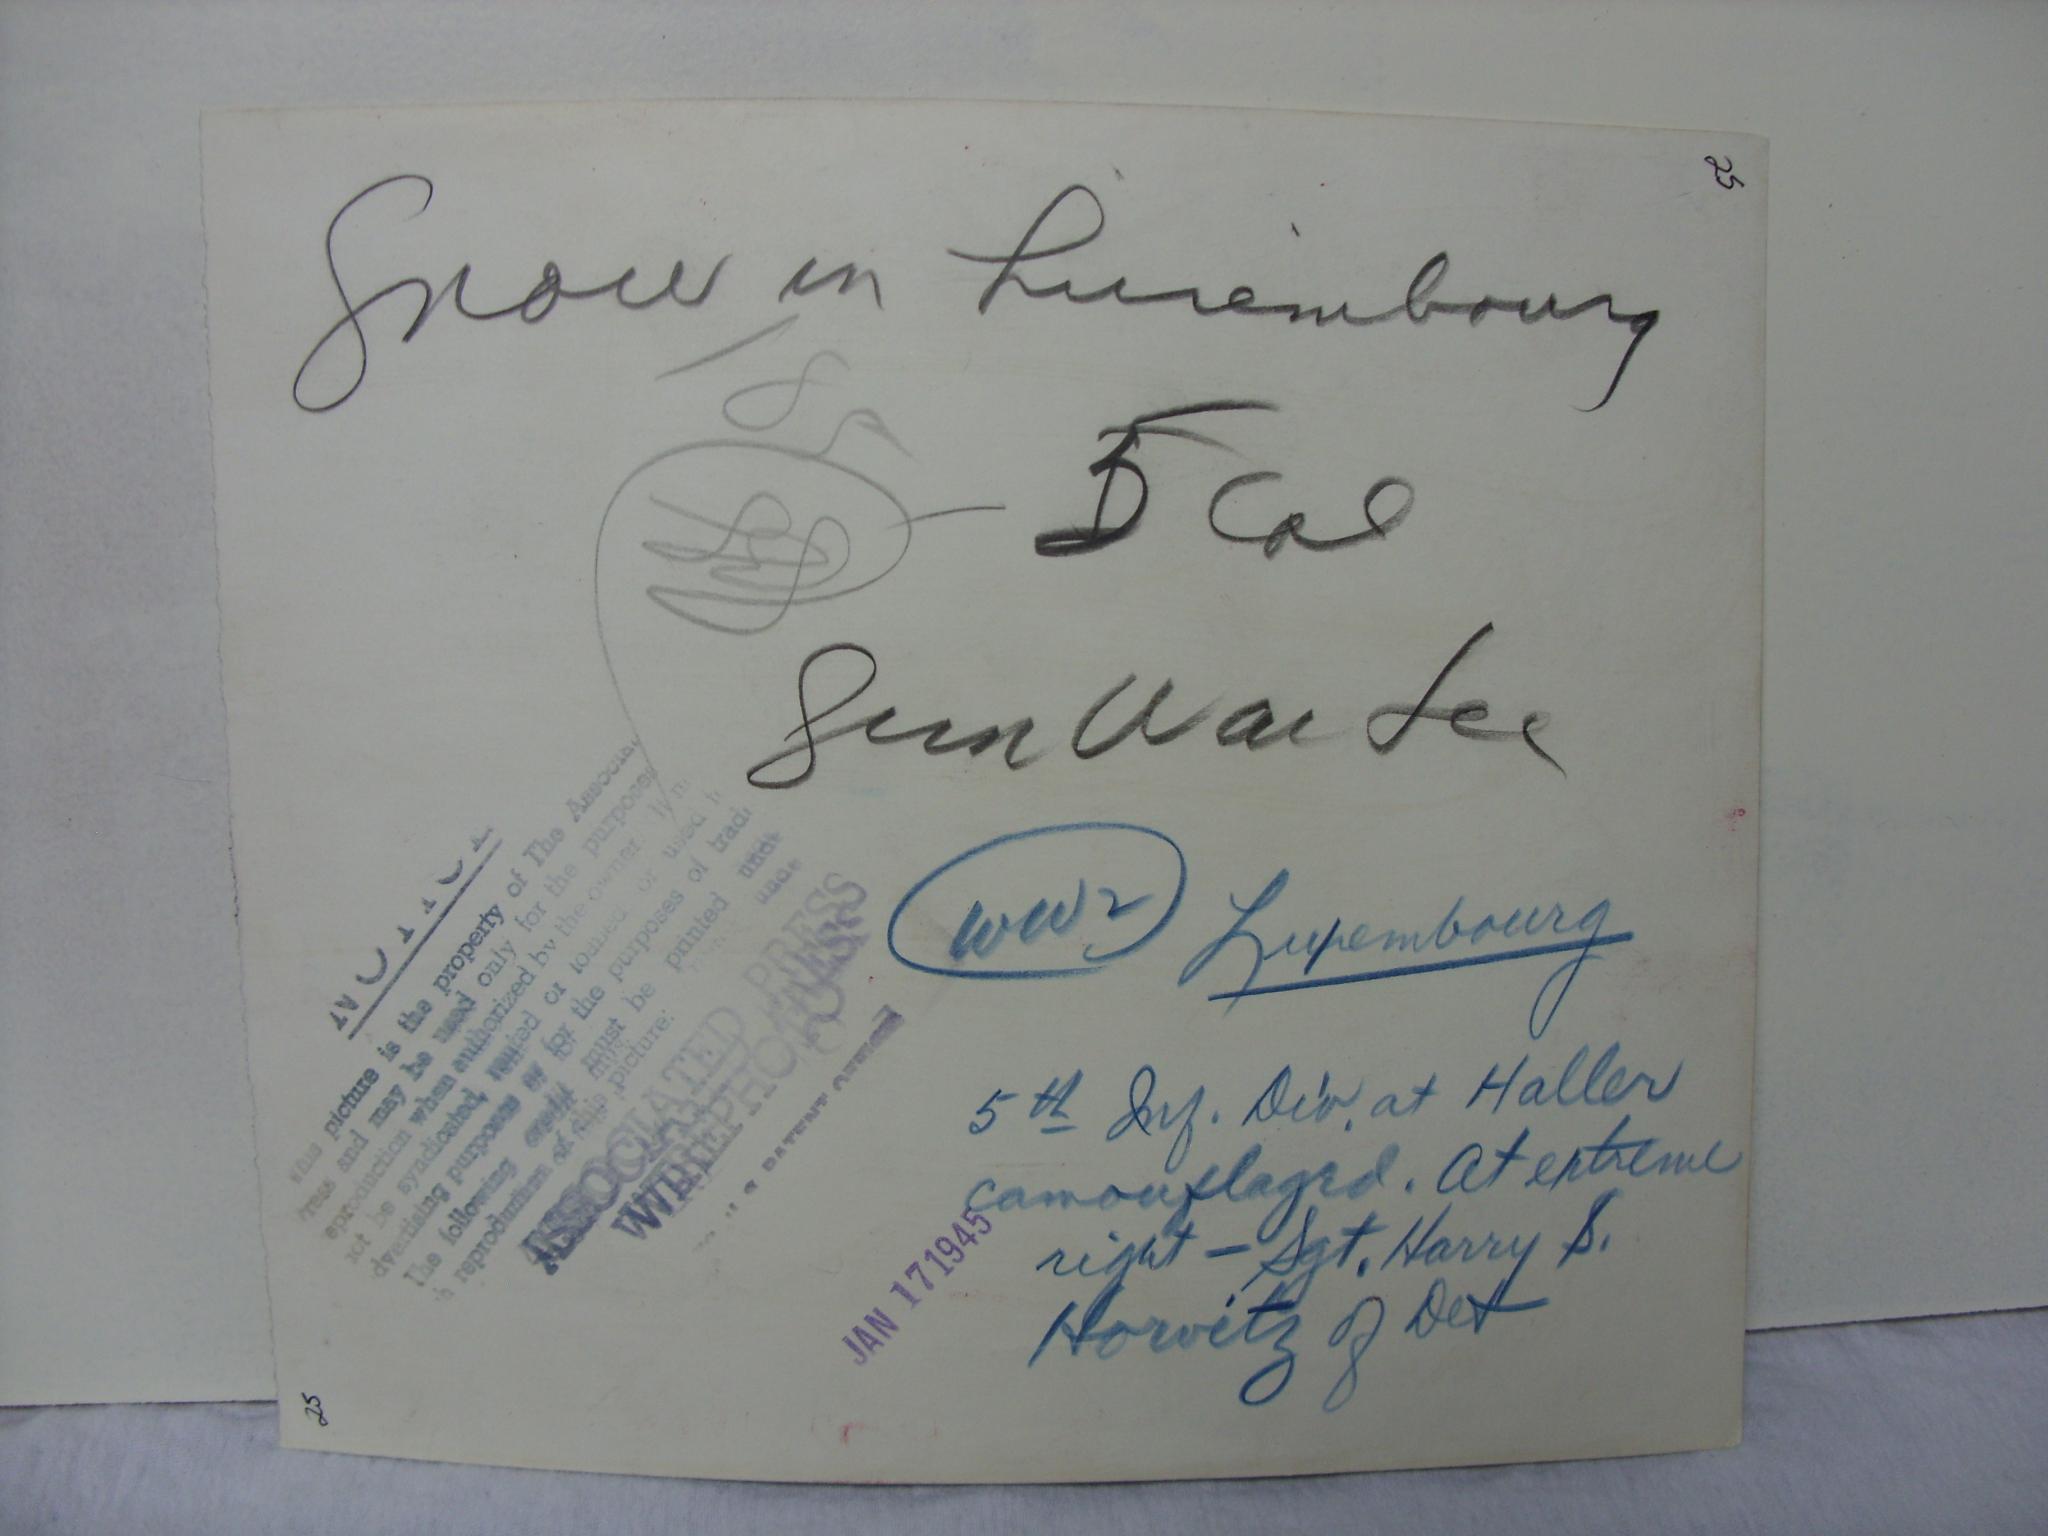 25
Snow in Luxembourg
5 Col
Sun War Sec
WW2 Luxembourg
5th Inf. Div. at Haller
camouflaged. At extreme
right - Sgt. Harry S.
Horvitz of Det
NOTICE
this picture is the property of The Associa
ress and may be used only for the purposes
eproduction when authorized by the owner. It m
not be syndicated, rented or loaned or used f
dvertising purposes or for the purposes of trad
The following credit must be printed unde
reproduction of this picture:
ASSOCIATED PRESS
WIREPHOTO
U S PATENT OFFICE
JAN 17 1945
25